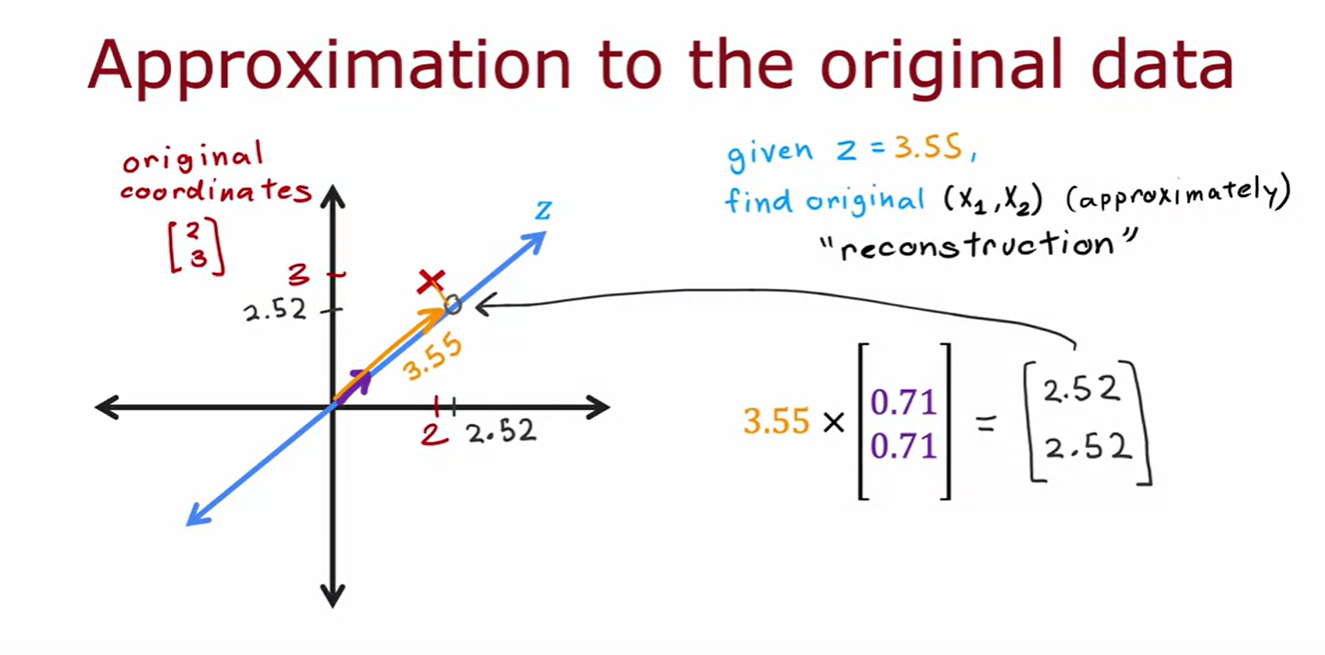 Approximation to the original data
original
coordinates
[2
3]
3
2.52
z
3.55
2 2.52
given z = 3.55,
find original (x₁,x₂) (approximately)
"reconstruction"
3.55 × [0.71
0.71] = [2.52
2.52]